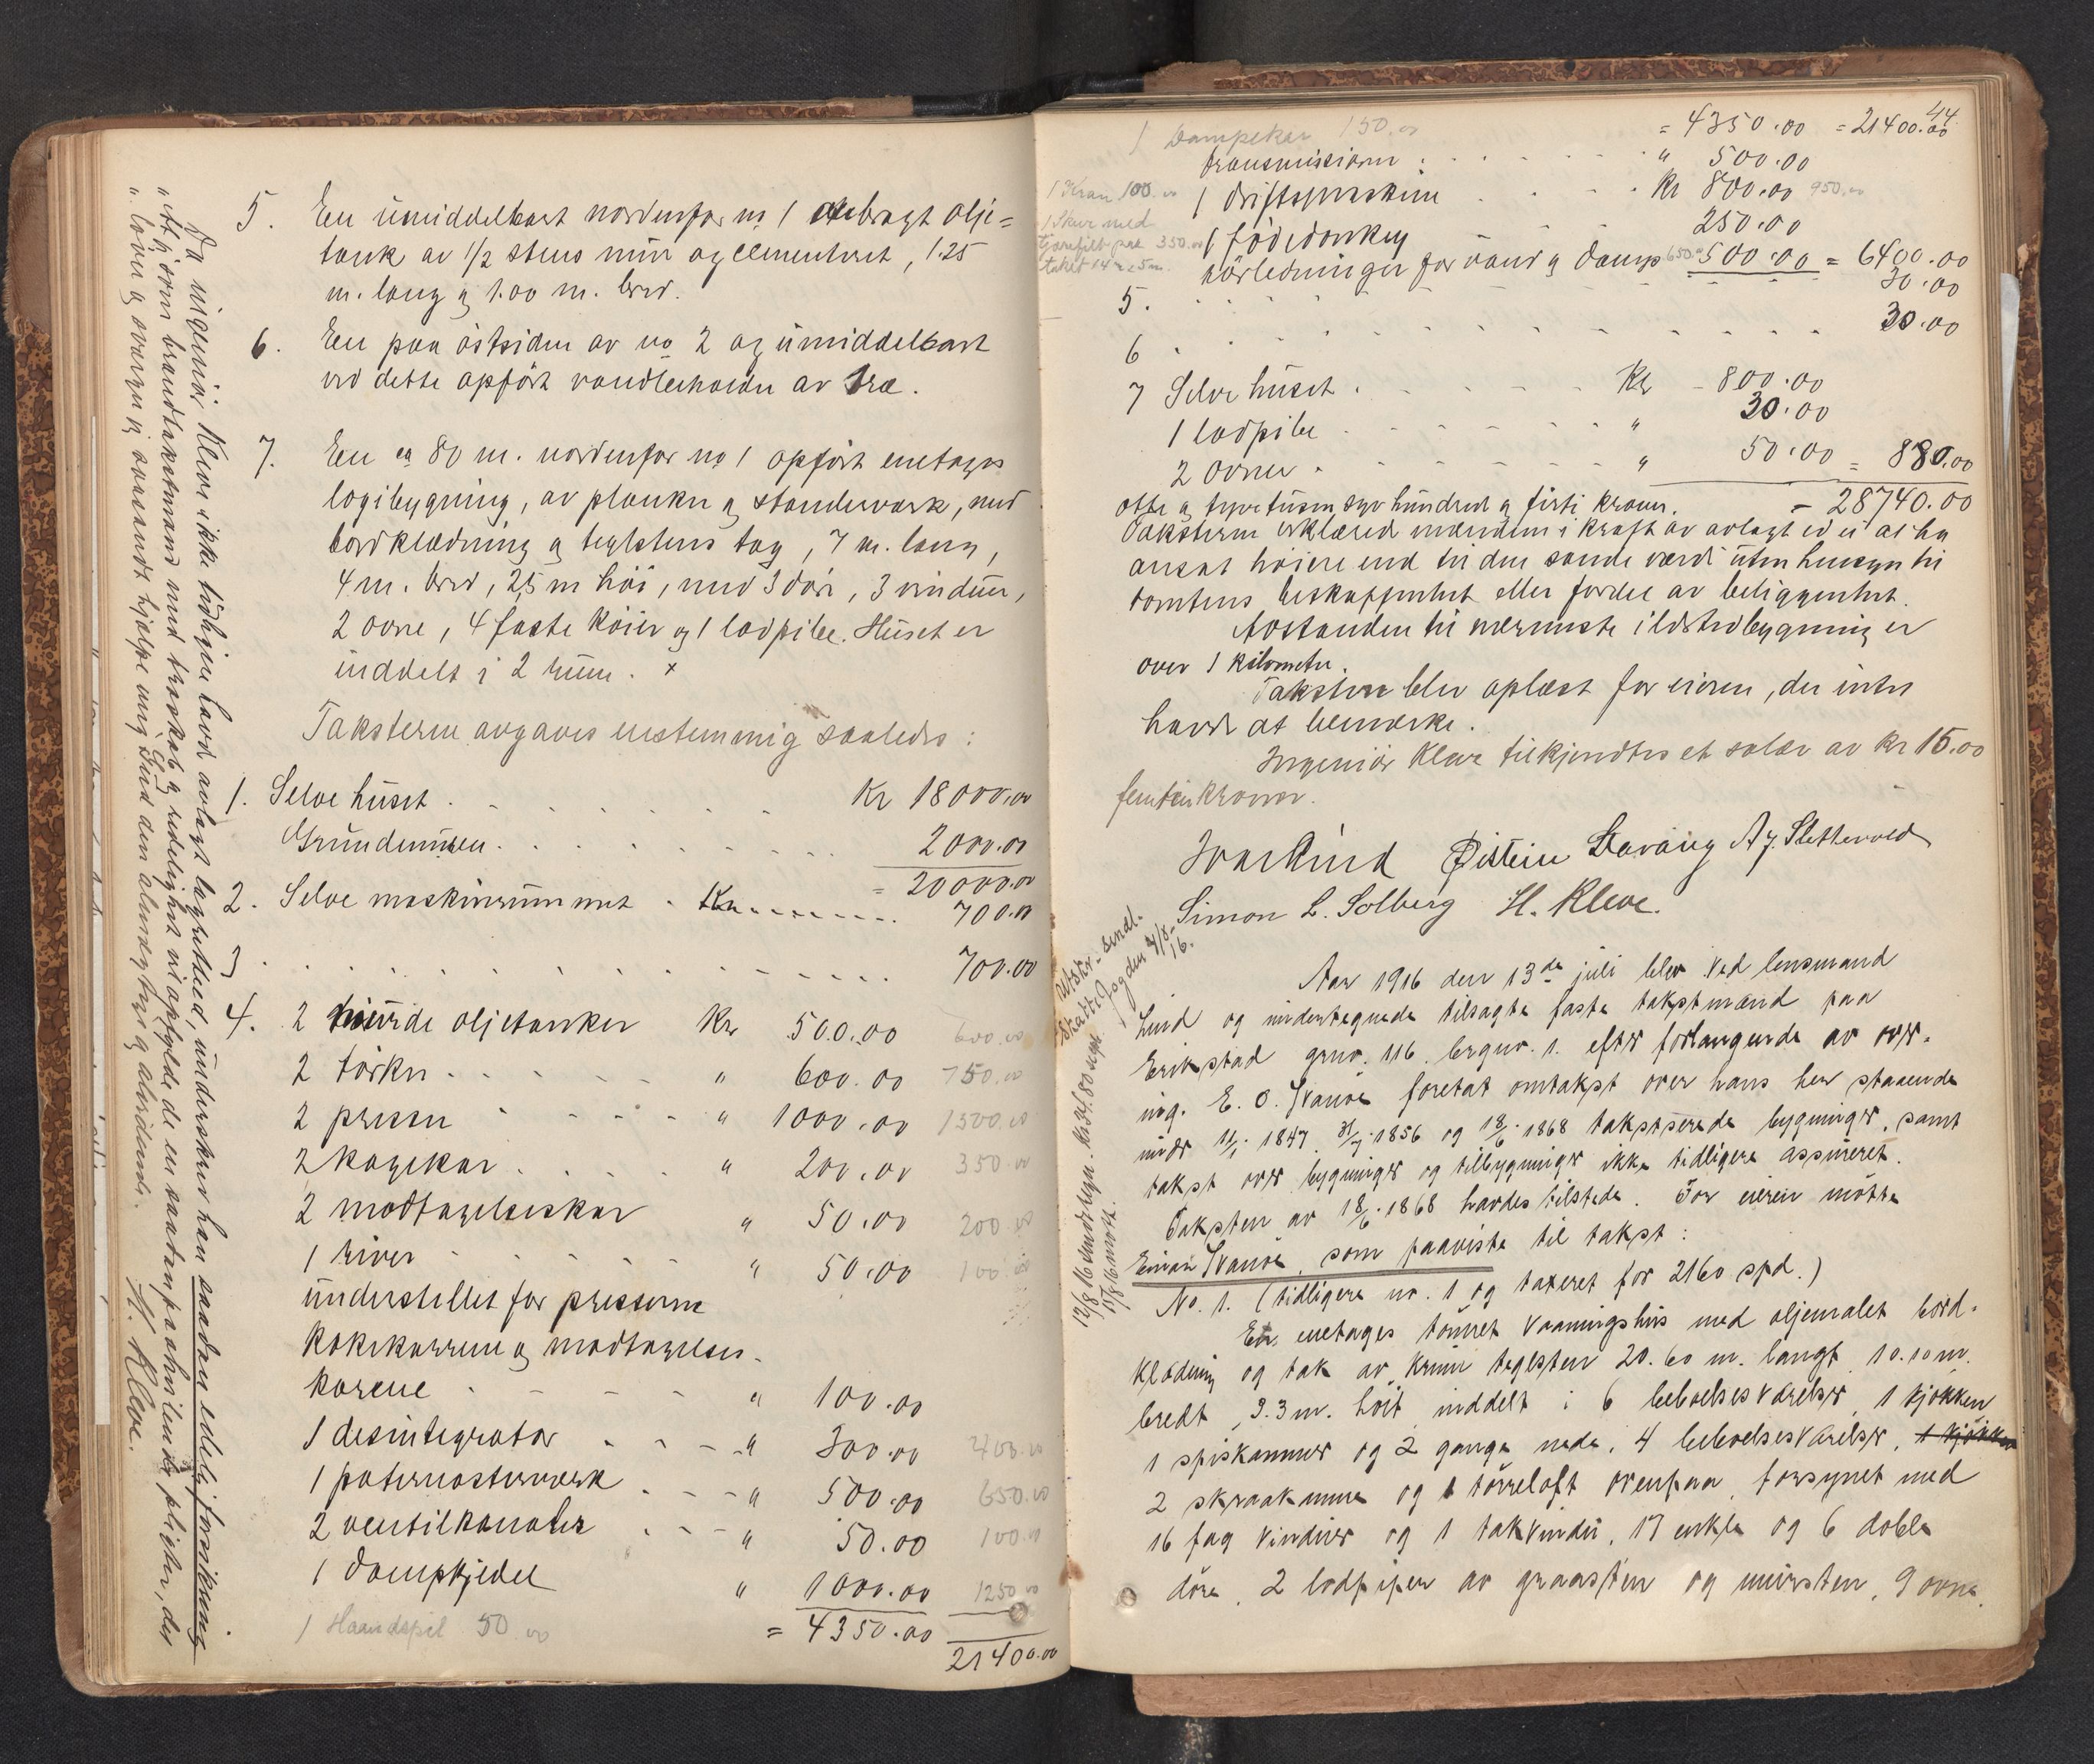 5. En umiddelbart nordenfor no 1 anbragt olje=
tank av 1/2 stens mur og cementeret, 1.25
m. lang og 1.00 m. bred.
6. En paa østsiden av no 2 og umiddelbart
ved dette opført vandbeholder av træ.
7. En ca 80 m. nordenfor no 1 opført enetages
logibygning, av planker og standerværk, med
bordklædning og teglstens tag, 7 m. lang,
4 m. bred, 2,5 m høi, med 3 døre, 3 vinduer,
2 ovne, 4 faste køier og 1 lodpibe. Huset er
inddelt i 2 rum. x
Taksterne avgaves enstemmig saaledes:
1. Selve huset . . . . . Kr 18000.00
Grundmuren . . . . . 2000.00
= 20000.00
2. Selve maskinrummet . . . . . 700.00
3 . . . . . 700.00
4. 2 murede oljetanker Kr 500.00 600.00
2 tørker . . . . " 600.00 750.00
2 presser . . . . " 1000.00 1500.00
2 kogekar . . . . " 200.00 350.00
2 modtagelseskar " 50.00 200.00
1 river . . . . " 50.00 100.00
understellet for presserne
kokekarrene og modtagelses-
karene . . . . " 100.00
1 desintegrator . . . " 300.00 400.00
1 paternosterværk . . . " 500.00 650.00
2 ventilkanaler . . . " 50.00 100.00
1 dampkjedel " 1000.00 1250.00
1 Haandspil 50.00 = 4350.00
21400.00
Da ingeniør Kleve ikke tidligere havd avlagt lagretsed, underskrev han saadan edelig forsikring
"At jeg som brandtakstmand med troskab og redelighet vil opfylde de en saadan paahvilende pligter, det
"lover og sværger jeg saasandt hjælpe mig Gud den almægtige og alvidende.
H. Kleve.
44.
= 4350.00 = 21400.00
1 Dampekar 150.00
transmissioner . . . . " 500.00
1 Kran 100.00
1 driftsmaskine . . . Kr 800.00 950.00
1 Skur med
tjærefilt paa 350.00
taket 14 x 5 m.
1 fødedonkey 250.00
rørledninger for vand og damp 650.00 500.00 = 6400.00
5. . . . . . 30.00
6 . . . . . 30.00
7 Selve huset . . . . Kr 800.00
1 lodpibe . . . . " 30.00
2 ovner . . . . " 50.00 = 880.00
otte og tyvetusen syv hundred og firti kroner. = 28740.00
Taksterne erklæred mændene i kraft av avlagt ed ei at ha
ansat høiere end til den sande værdi uten hensyn til
tomtens beskaffenhet eller fordel av beliggenhet.
Avstanden til nærmeste ildstedbygning er
over 1 kilometer.
Taksten blev oplæst for eieren, der intet
havde at bemærke.
Ingeniør Kleve tilkjendtes et salær av kr 15.00
femten kroner.
Ivar Lind Øistein Davang A J. Slettevold
Simon L. Solberg H. Kleve.
Utskr. sendt
skattefogden 24/8-
16.
Aar 1916 den 13de juli blev ved lensmand
Lind og undertegnede tilsagte faste takstmænd paa
Erikstad grno. 116 brgno. 1. efter forlangende av
E. O. Svanøe foretat omtakst over hans her staaende
under 11/1. 1847, 31/7. 1856 og 18/6. 1868 takserede bygninger, samt
takst over bygninger og tilbygninger ikke tidligere assureret.
Taksten av 18/6. 1868 havdes tilstede. For eieren møtte
Einar Svanøe, som paaviste til takst:
No. 1. (tidligere no. 1 og taxeret for 2160 spd.)
En enetages tømret vaaningshus med oljemalet bord-
klædning og tak av krum teglsten 20.60 m. langt 10.10 m.
bredt, 3.3 m. høit inddelt i 6 beboelsesværelser, 1 kjøkken
1 spiskammer og 2 gange nede, 4 beboelsesværelser, 1 kjøkken
2 skraakamre og 1 tørreloft ovenpaa, forsynet med
16 fag vinduer og 1 takvindu, 17 enkle og 6 doble
døre, 2 lodpiper av graasten og mursten, 9 ovne,